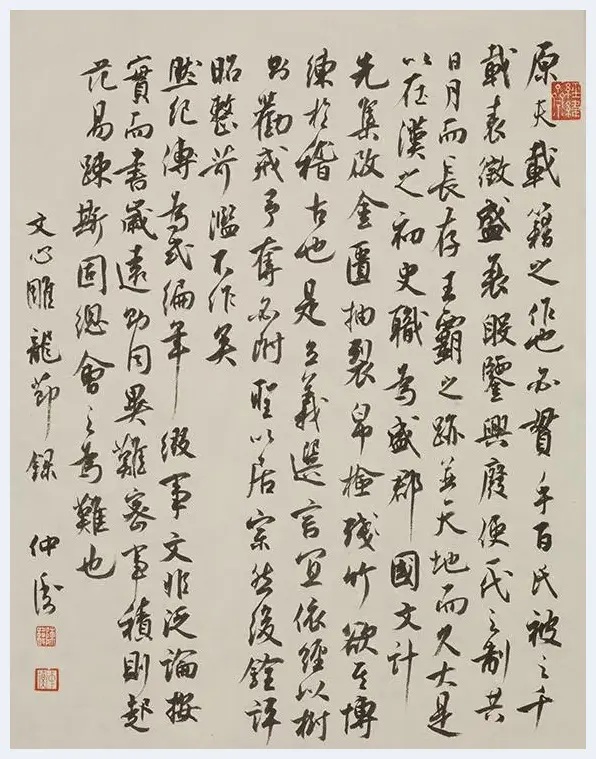 原夫載籍之作也必貫乎百氏被之千
載表徵盛衰殷鑒興廢使一代之制共
日月而長存王霸之跡並天地而久大是
以在漢之初史職為盛郡國文計
先集啟金匱抽裂帛檢殘竹欲其博
練於稽古也是立義選言宜依經以樹
則勸戒予奪必附聖以居宗然後銓評
昭整苛濫不作矣
然紀傳為式編年綴事文非泛論按
實而書歲遠則同異難密事積則起
訖易疎斯固總會之為難也
文心雕龍節錄 仲